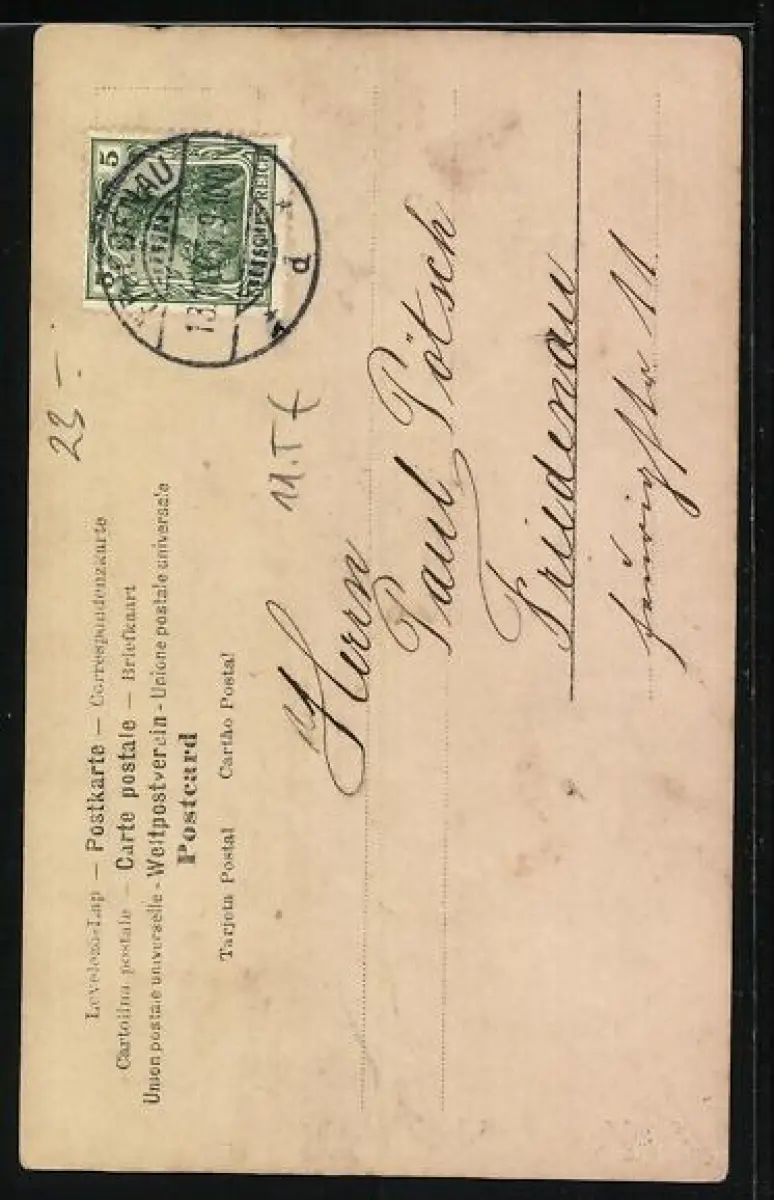 Levelező-Lap — Postkarte — Correspondenzkarte
Cartolina postale — Carte postale — Briefkaart
Union postale universelle - Weltpostverein - Unione postale universale
Postcard
Tarjeta Postal Cartão Postal
5
DEUTSCHES REICH
FRIEDENAU
d
23 -
Herrn
Paul Pötsch
Friedenau
11.